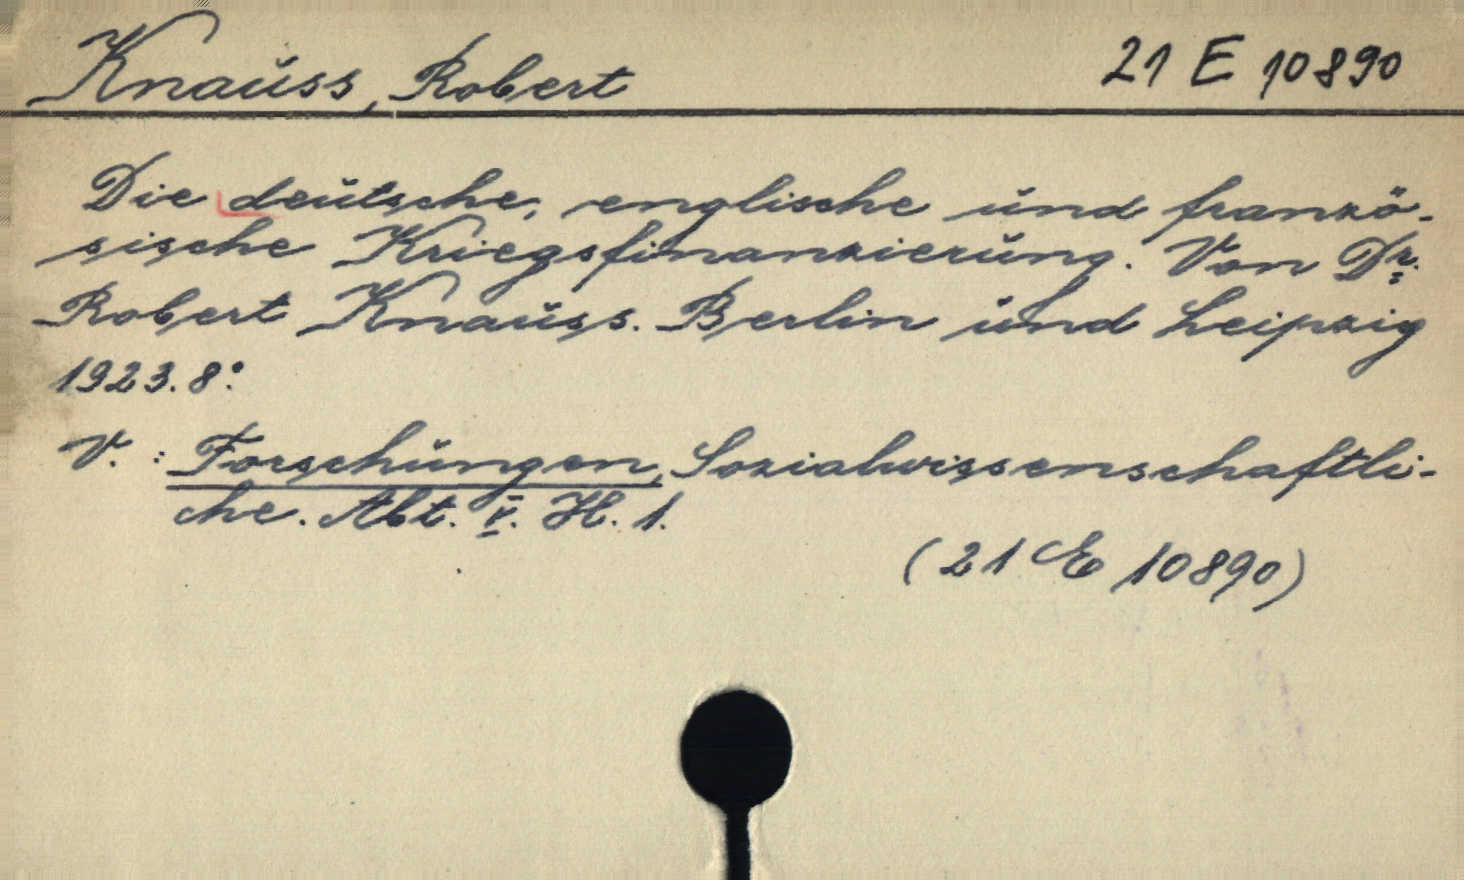 Knauss, Robert 21 E 10890
Die deutsche, englische und franzö-
sische Kriegsfinanzierung. Von Dr.
Robert Knauss. Berlin und Leipzig
1923. 8°.
V. : Forschungen, Sozialwissenschaftli-
che. Abt. V. H. 1.
(21 E 10890)